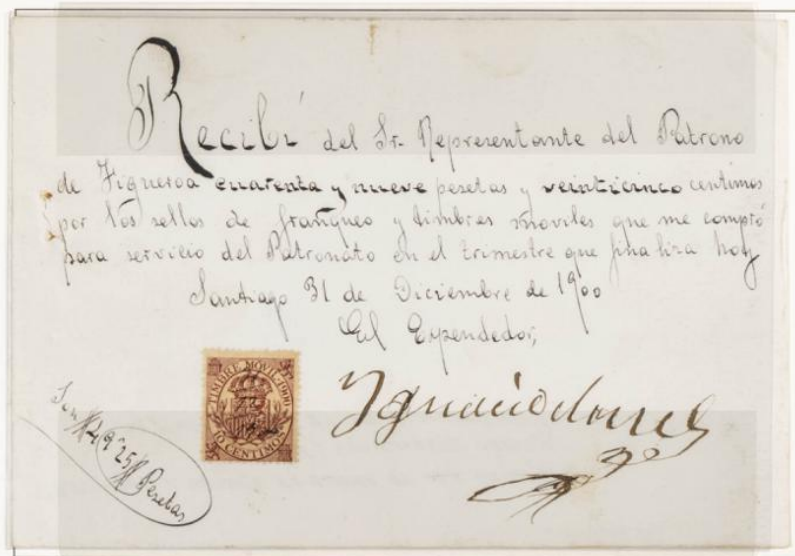 Recibí del Sr. Representante del Patrono
de Figueroa cuarenta y nueve pesetas y veinticinco centimos
por los sellos de franqueo y timbres moviles que me compró
para servicio del Patronato en el trimestre que finaliza hoy
Santiago 31 de Diciembre de 1900
El Expendedor,
TIMBRE MOVIL 1900
10 CENTIMOS
Ignacio
Son 49'25 Pesetas